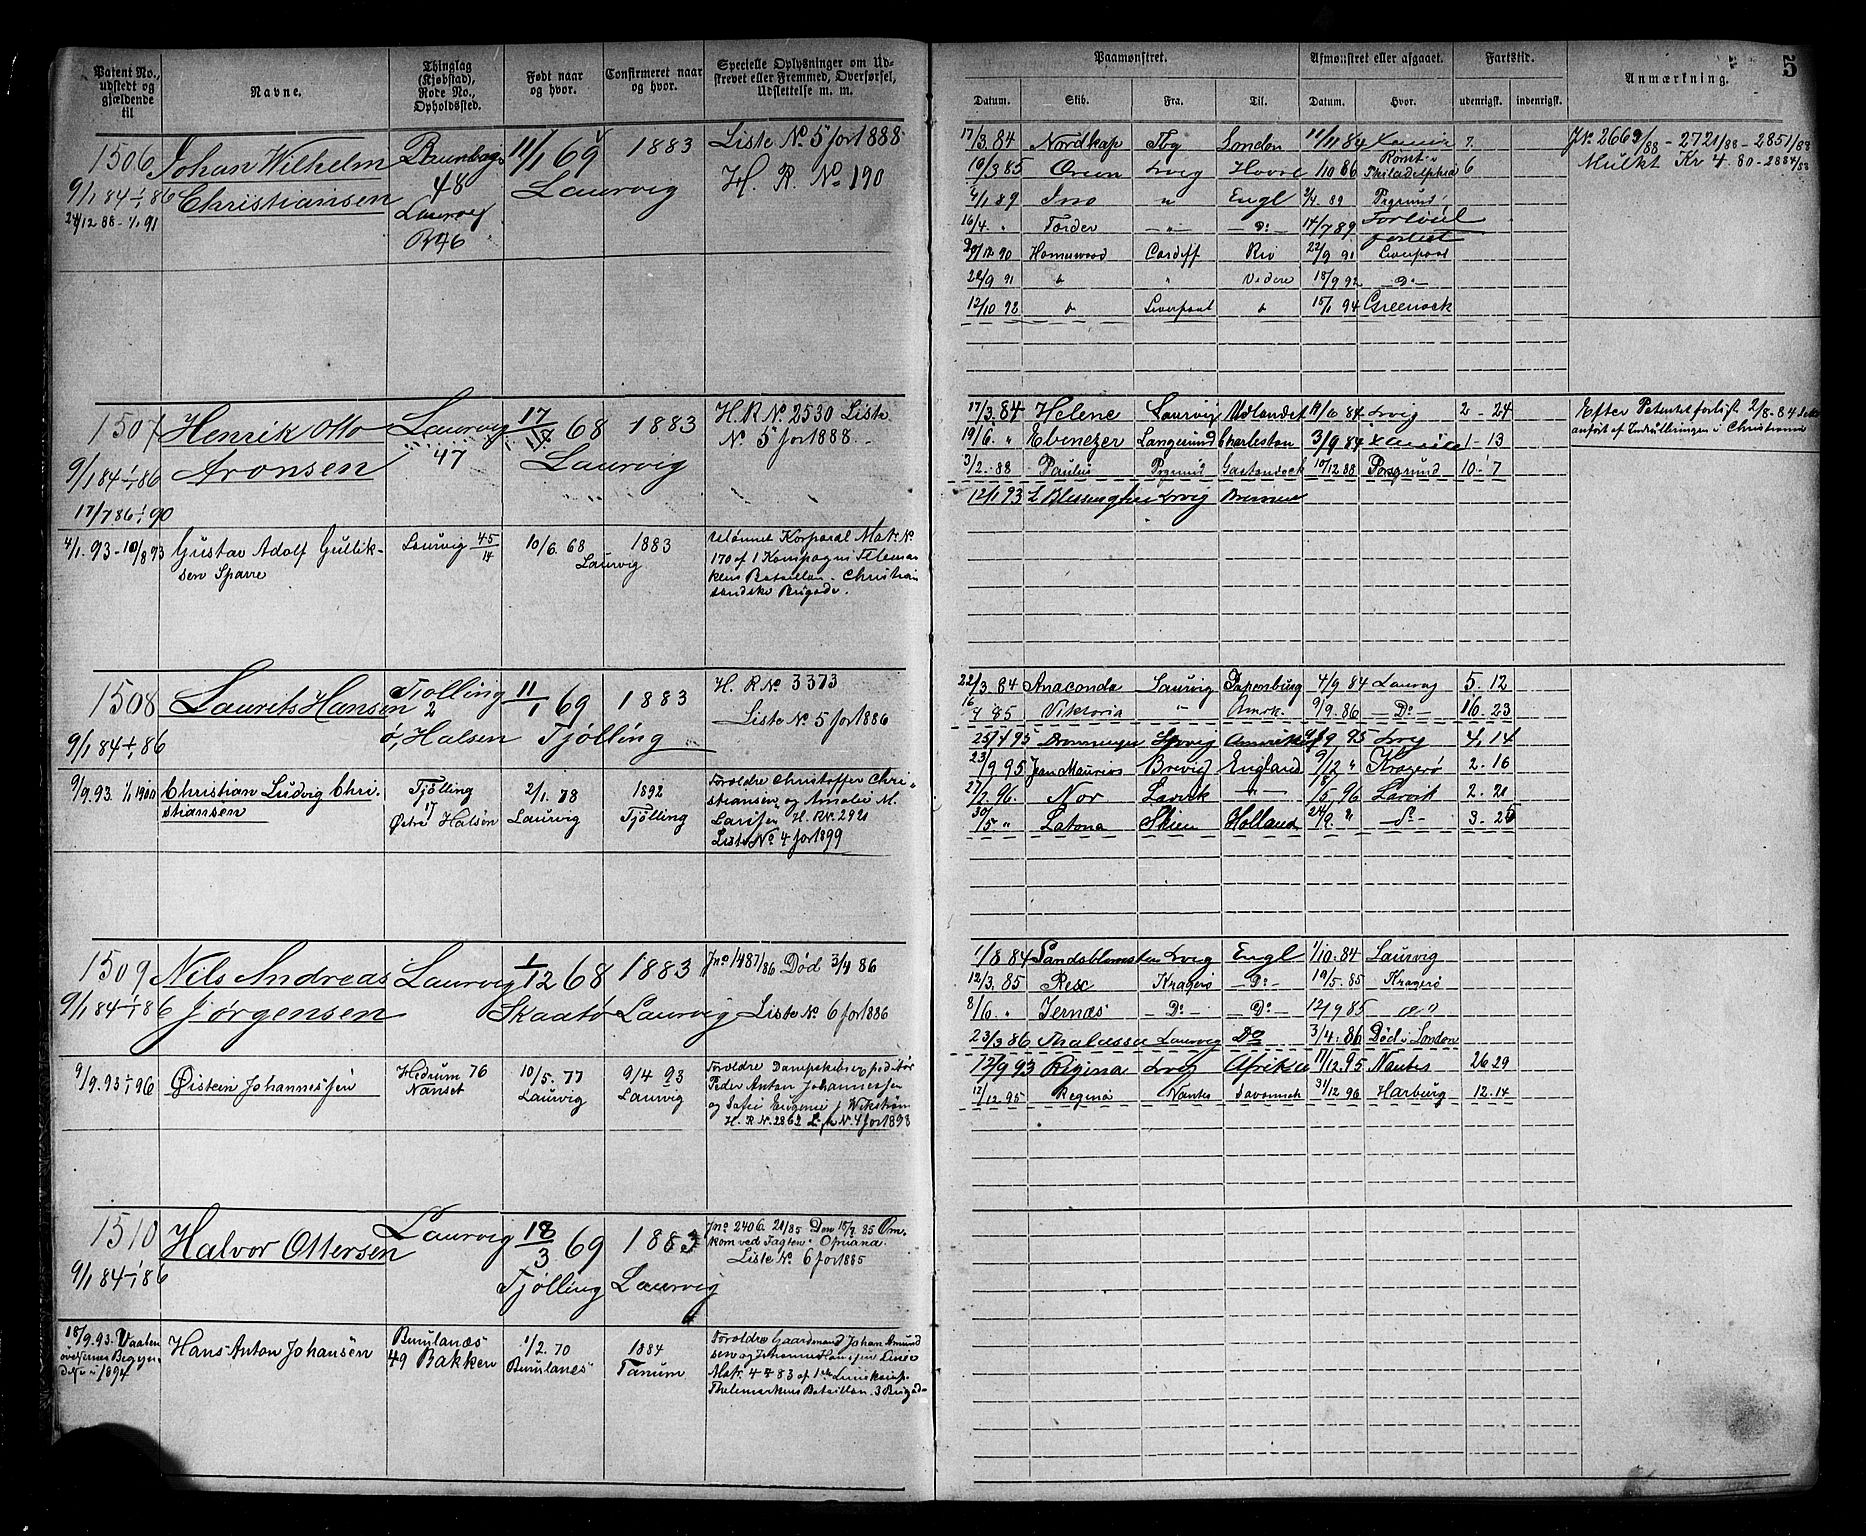 Patent No., udstedt og gjældende til
Navne.
Thinglag (Kjøbstad), Rode No., Opholdssted.
Født naar og hvor.
Confirmeret naar og hvor.
Specielle Oplysninger om Udskrevet eller Fremmed, Overførsel, Udslettelse m. m.
Paamønstret.
Afmønstret eller afgaaet.
Fartstid.
Anmærkning.
5
Datum.
Skib.
Fra.
Til.
Datum.
Hvor.
udenrigsk.
indenrigsk.
1506 Johan Wilhelm 11/1 69 1883 Liste No 5 for 1888
9/1 84 - 1/1 86 Christiansen 48 Laurvig H. R. No 190
Laurvig
17/3.84 Nordkap Tbg London 11/11 84
19/3 85 Orion Lvig Havre 1/10 86 Philadelphia 6
4/1 89 Ino " Engl 2/4. 89
16/4. " Farder - " - Do 14/7 89 Forlovet
Homewood Cardiff Rio 22/9 91 Liverpool
22/9 91 " Videre 18/9 92 - Do -
12/10 92 Liverpool 15/1 94 Greenock
Mulkt Kr 4.80 - 2884/88
1507 Henrik Otto Laurvig 17/11 68 1883 H. R. No. 2530 Liste
9/1 84 - 1/1 86 Aronsen 47 Laurvig No 5 for 1888.
17/7 86 - 1/1 90
17/3.84 Helene Laurvig Udlandet 14/6 84 Lvig 2 - 24
19/6. " Ebenezer Langesund Charleston 3/9 84 1 - 13
3/2. 88 Paulus 10/12 88 Porsgrund 10 - 7
12/1 93 Lvig Bremen
Efter Patentet forlist 2/8-84
anført af Indrulleringen i Christiania
4/1. 93 - 10/8 93 Gustav Adolf Gullik- Laurvig 45/14 10/6. 68 1883
sen Sparre Laurvig
utlønnet Korporal Mat. No.
170 af 1 Kompagni Telemar-
kens Bataillon. Christian
sandske Brigade.
1508 Laurits Hansen Tjølling 11/1 69 1883 H. R No 3373
2 Liste No 5 for 1886
9/1 84 - 1/1 86 Ø, Halsen Tjølling
22/3 84 Anaconda Laurvig Papenburg 4/9 84 Laurvig 5. 12
16/4 85 Viktoria " Amrk. 9/9. 86 - Do - 16. 23
25/4 95 Lrvig 95 Lvig 4, 14
23/9 95 Jean Maurios Brevig England 9/12 " Kragerø 2. 16
27/2 96. Nor Larvik - " - 18/5 96 Larvik 2. 21
30/5 " Latona Skien Holland 24/8 " Do - 3 - 25
9/9.93. 1/1 1900 Christian Ludvig Chri- Tjølling 2/1. 78 1892
stiansen 17 Østre Halsen Laurvig Tjølling
Forældre Christoffer Chri-
stiansen og Amalie M.
Larsen H. R. No. 2921
Liste No 4 for 1899
1509 Nils Andreas Laurvig 1/12 68 1883 Jno 1487/86 Død 3/4 86
9/1 84 - 1/1 86 Jørgensen Skaatø Laurvig Liste No 6 for 1886
1/8 84 Lvig Engl 1/10. 84 Laurvig
12/3. 85 Resc Kragerø - Do - 19/5. 85 Kragerø
8/6. " Jernæs - Do - - Do - 12/9 85
23/3 86 Thalassa Laurvig Do 3/4. 86 Død i London
12/9 93 Regina Lvig Afrika 17/12 95 Nantes 26 29
17/12 95 Regina Nantes Savannah 31/12 96 Harburg 12. 14
9/9. 93 - 1/1 96 Øistein Johannessen Hedrum 76 10/5. 77 9/4 93
Nanset Laurvig Laurvig
Forældre Dampskibsexpeditør
Peder Anton Johannessen
og Sofie Eugenie f Wikstrøm
H. R No. 2862 L. No. 4 for 1898
1510 Halvor Ottersen Laurvig 18/3 69 1883
9/1 84 - 1/1 86 Tjølling Laurvig
Jno 2406. 21/85 Den 18/7 85 Om-
kom ved Jagten Opriana.
Liste No. 6 for 1885
18/9. 93. Hans Anton Johansen Brunlanæs 1/2. 70 1884
49 Bakken Brunlanes Tanum
1894
Forældre Gaardmand Johan Amund
sen og Johanne Hansen Linie
Mat. 483 af 1ste Liniekomp.
Thelemarkens Bataillon. 3 Brigade